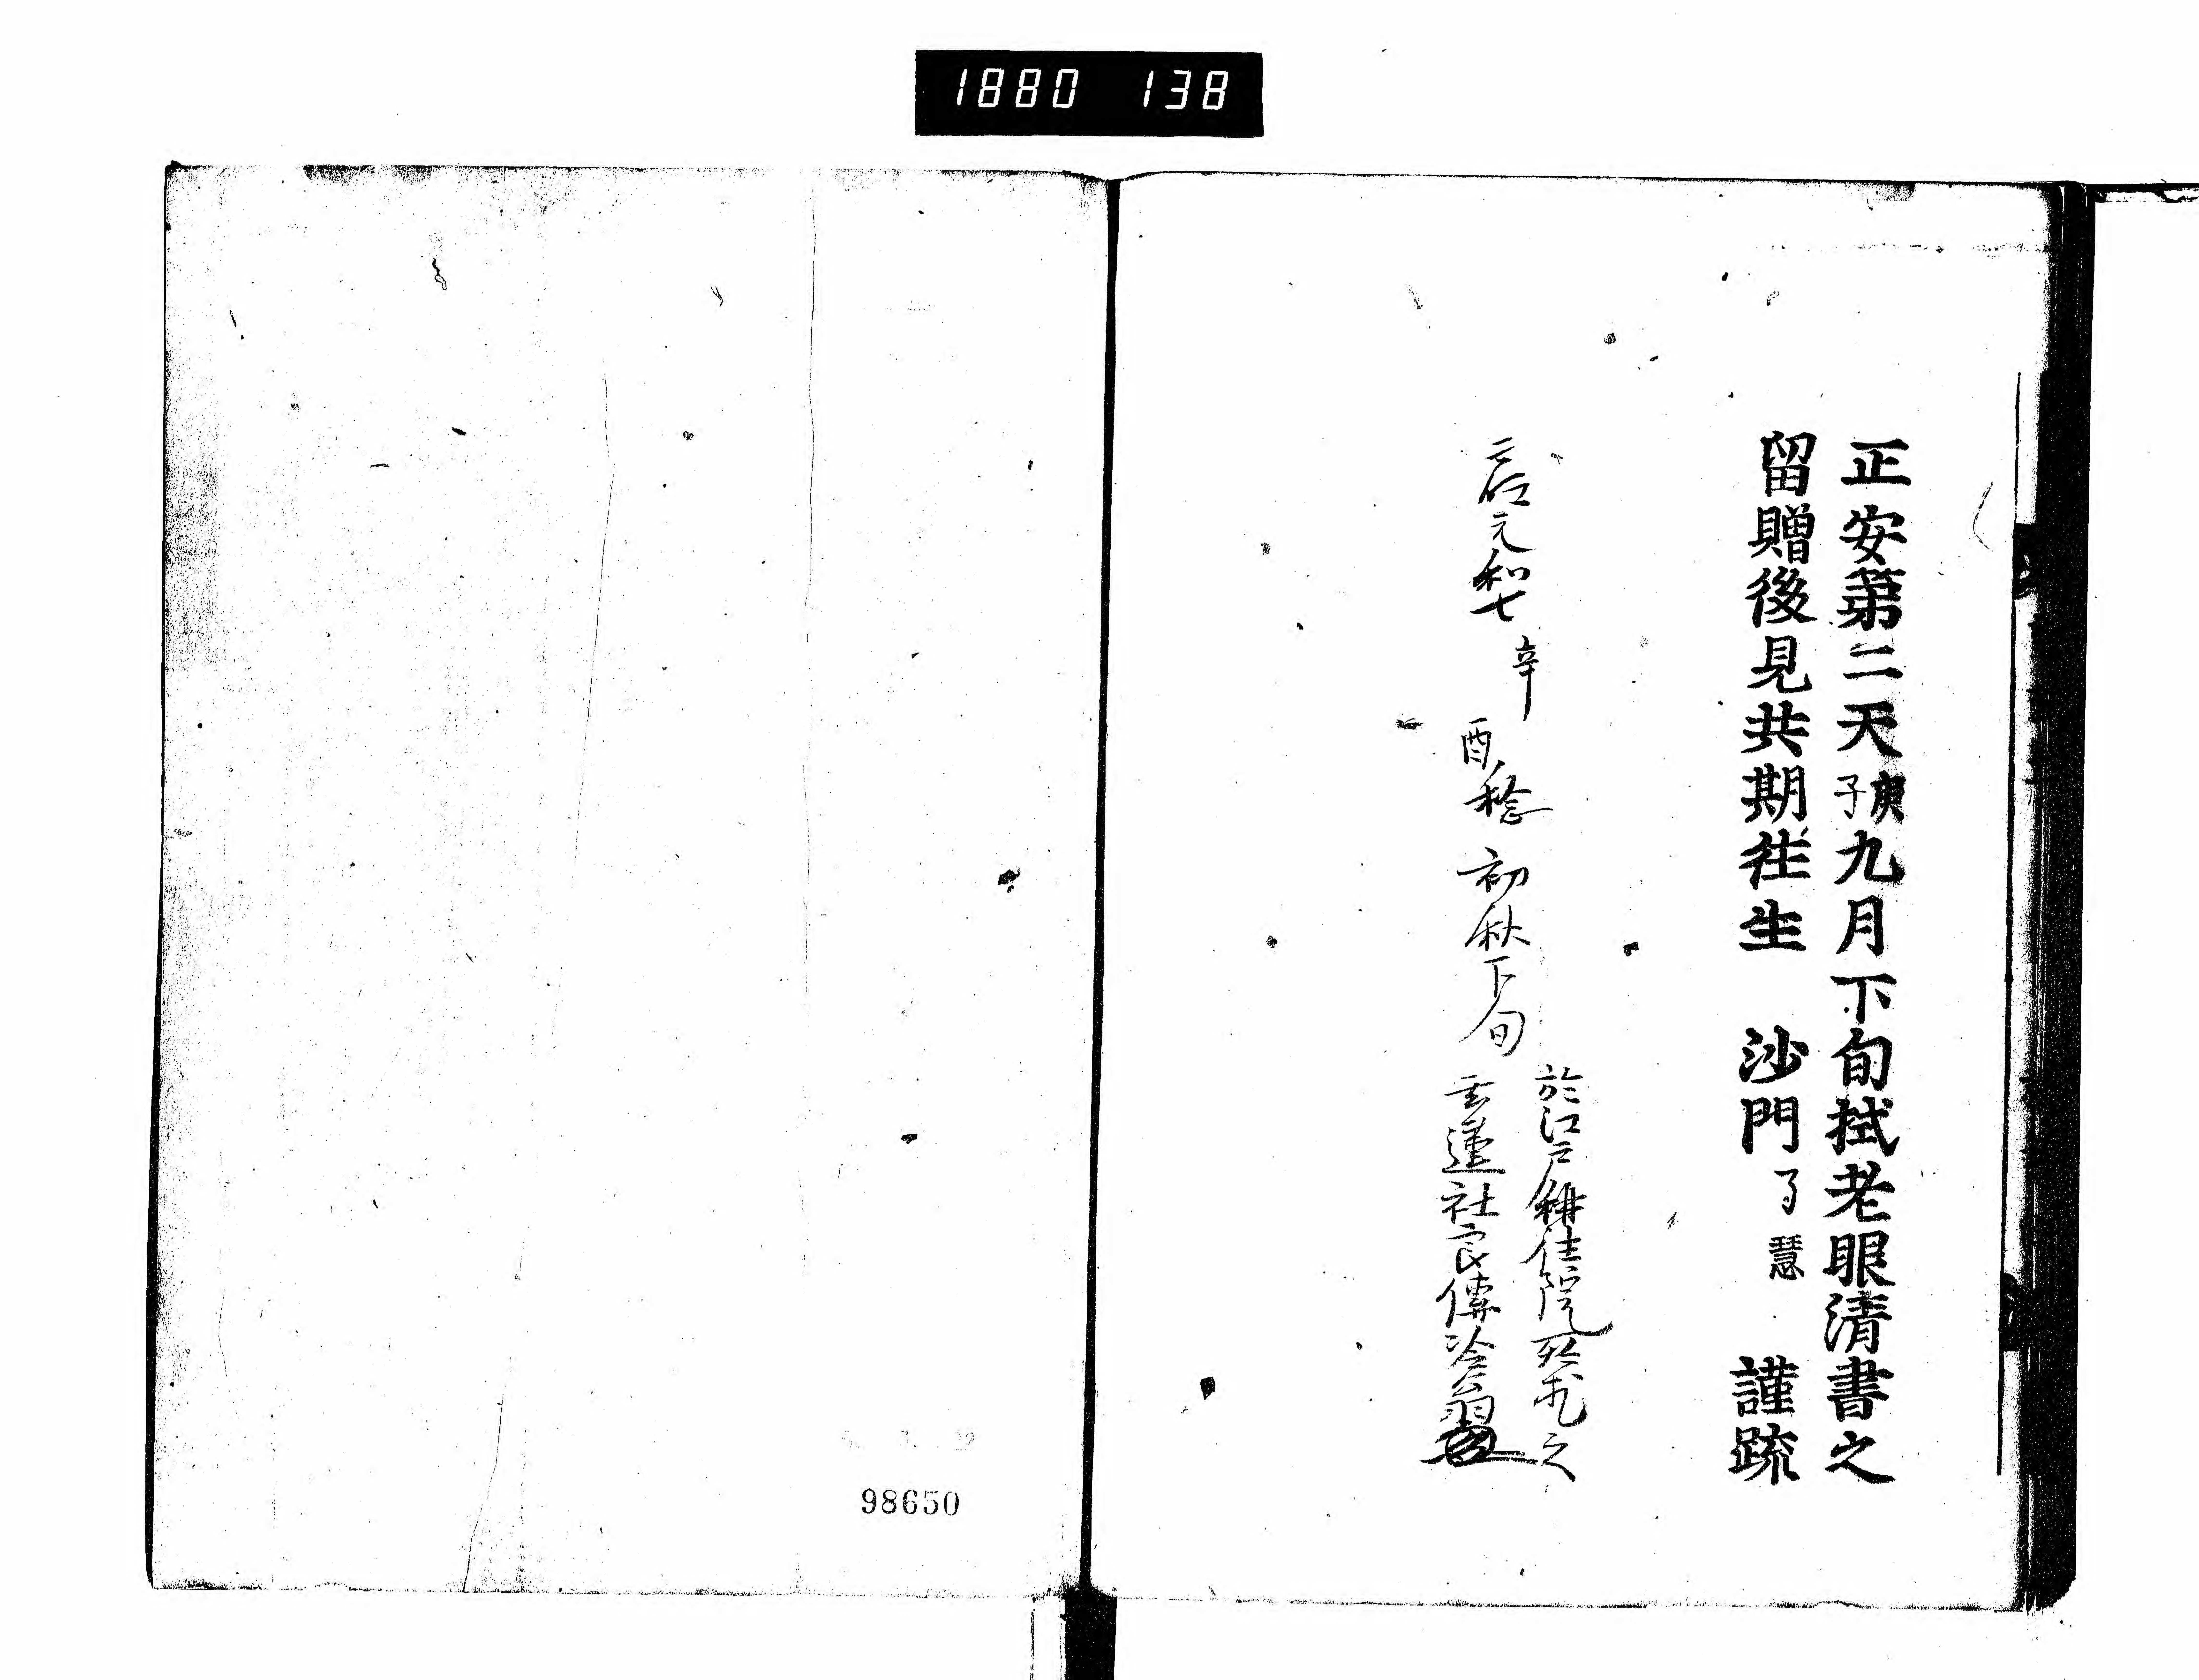 1880 138
正安第二天庚子九月下旬拭老眼清書之
留贈後見共期徃生 沙門了慧 謹疏
元和七辛
酉稔 初秋下旬
於江戸 住院 之
蓮社 傳
98650